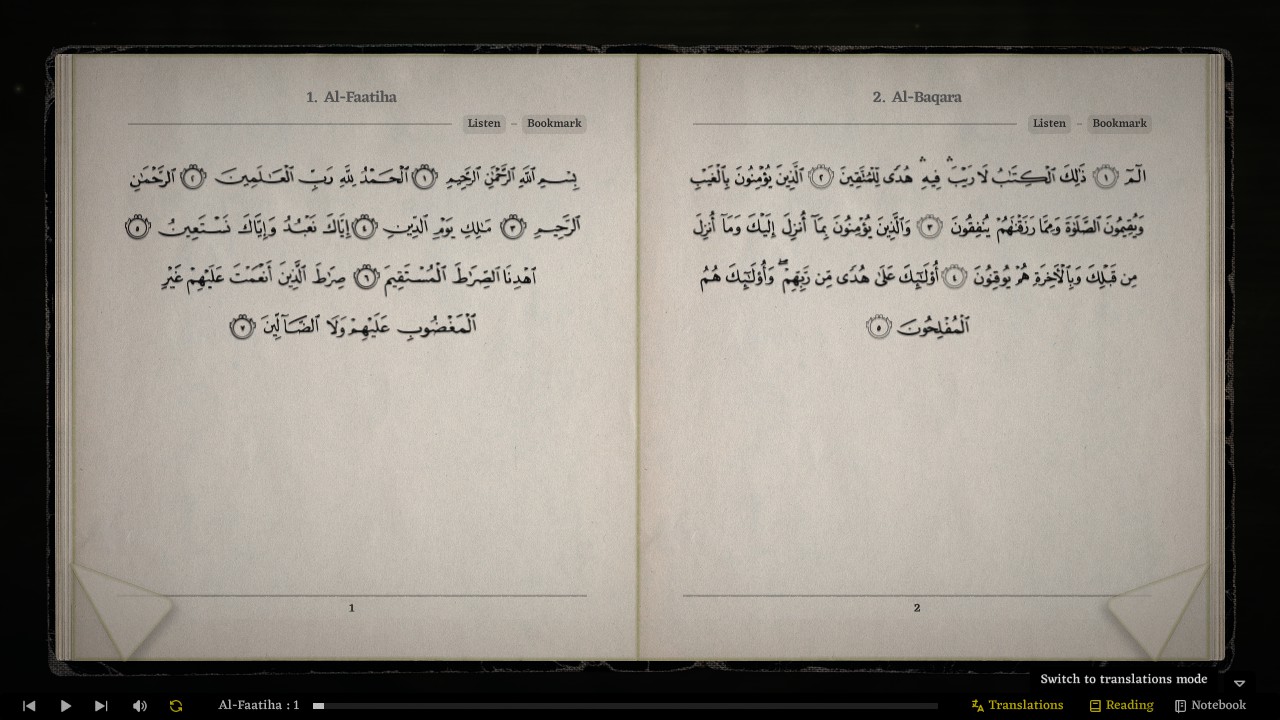 1. Al-Faatiha
Listen – Bookmark
بِسْمِ ٱللَّهِ ٱلرَّحْمَٰنِ ٱلرَّحِيمِ ١ ٱلْحَمْدُ لِلَّهِ رَبِّ ٱلْعَٰلَمِينَ ٢ ٱلرَّحْمَٰنِ
ٱلرَّحِيمِ ٣ مَٰلِكِ يَوْمِ ٱلدِّينِ ٤ إِيَّاكَ نَعْبُدُ وَإِيَّاكَ نَسْتَعِينُ ٥
ٱهْدِنَا ٱلصِّرَٰطَ ٱلْمُسْتَقِيمَ ٦ صِرَٰطَ ٱلَّذِينَ أَنْعَمْتَ عَلَيْهِمْ غَيْرِ
ٱلْمَغْضُوبِ عَلَيْهِمْ وَلَا ٱلضَّآلِّينَ ٧
1
2. Al-Baqara
Listen – Bookmark
الٓمٓ ١ ذَٰلِكَ ٱلْكِتَٰبُ لَا رَيْبَ ۛ فِيهِ ۛ هُدًى لِّلْمُتَّقِينَ ٢ ٱلَّذِينَ يُؤْمِنُونَ بِٱلْغَيْبِ
وَيُقِيمُونَ ٱلصَّلَوٰةَ وَمِمَّا رَزَقْنَٰهُمْ يُنفِقُونَ ٣ وَٱلَّذِينَ يُؤْمِنُونَ بِمَآ أُنزِلَ إِلَيْكَ وَمَآ أُنزِلَ
مِن قَبْلِكَ وَبِٱلْءَاخِرَةِ هُمْ يُوقِنُونَ ٤ أُو۟لَٰٓئِكَ عَلَىٰ هُدًى مِّن رَّبِّهِمْ ۖ وَأُو۟لَٰٓئِكَ هُمُ
ٱلْمُفْلِحُونَ ٥
2
Switch to translations mode
Al-Faatiha : 1
Translations
Reading
Notebook